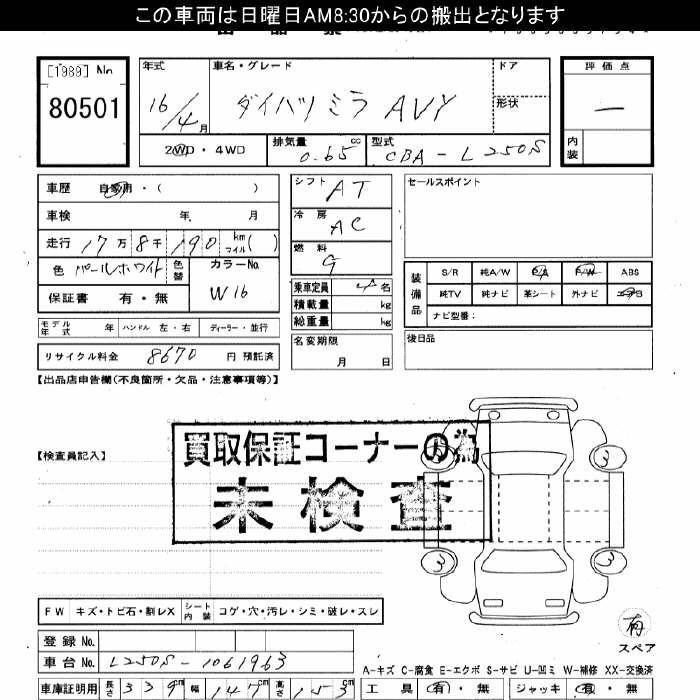 この車両は日曜日AM8:30からの搬出となります
[1989] No
80501
年式 車名・グレード ドア 評価点
16/4月 ダイハツミラ AVY 形状 —
内装
2WD・4WD 排気量 0.65 cc 型式 CBA-L250S
車歴 自家用・( )
シフト AT
セールスポイント
車検 年 月
冷房 AC
走行 17万8千190 km マイル( )
燃料 G
色 パールホワイト 色替 カラーNo. W16
装備品 S/R 純A/W P/S P/W ABS
乗車定員 4名
純TV 純ナビ 革シート 外ナビ エアB
保証書 有・無
積載量 kg
ナビ型番:
モデル年式 年 ハンドル 左・右 ディーラー・並行
総重量 kg
リサイクル料金 8670 円 預託済
名変期限 月 日
後日品
【出品店申告欄(不良箇所・欠品・注意事項等)】
買取保証コーナーの為
未検査
【検査員記入】
3 3
3 3
FW キズ・トビ石・割レX シート内装 コゲ・穴・汚レ・シミ・破レ・スレ
有
スペア
登録No.
車台No. L250S-1061963
A-キズ C-腐食 E-エクボ S-サビ U-凹ミ W-補修 XX-交換済
車庫証明用 長さ 339cm 幅 147cm 高さ 153cm
工具 有・無 ジャッキ 有・無